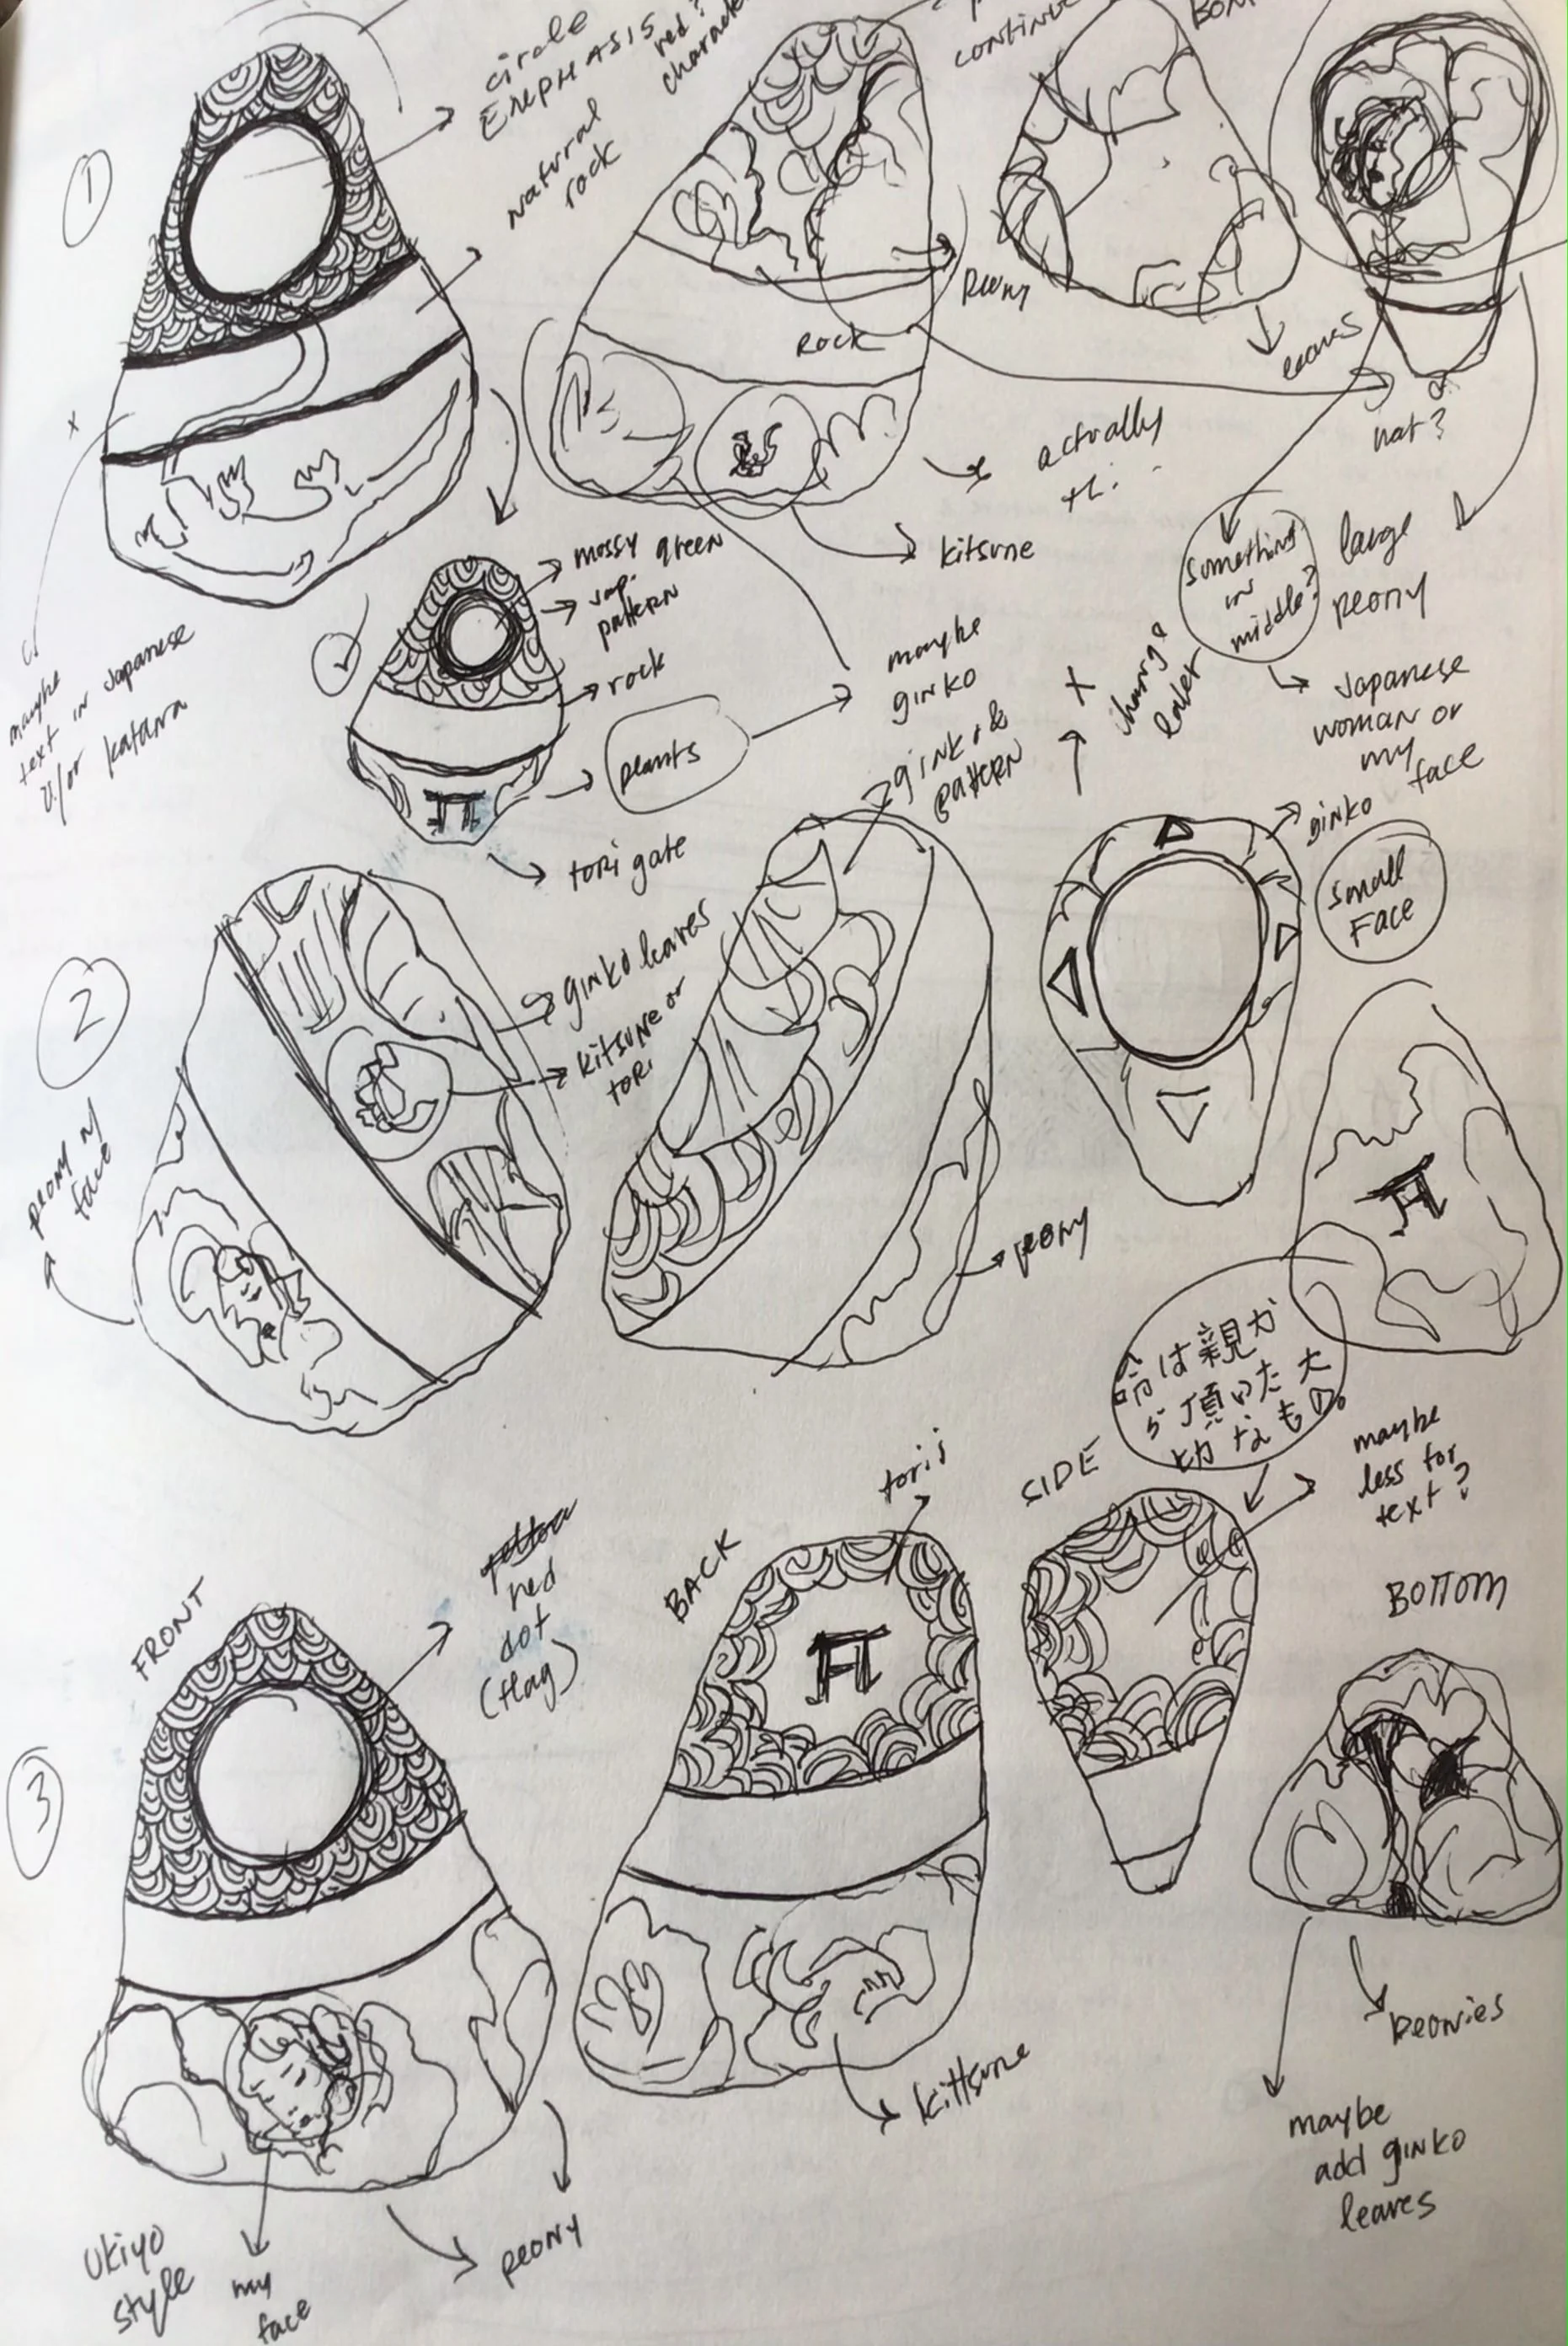 ①
circle
EMPHASIS
red?
natural
rock
continue
ROCK
Peony
leaves
hat?
actually
kitsune
maybe
text in Japanese
&/or katana
mossy green
Jap.
pattern
rock
plants
tori gate
maybe
ginko
ginko &
pattern
x
change
later
something
in
middle?
large
peony
Japanese
woman or
my
face
ginko
small
Face
②
ginko leaves
kitsune or
tori
peony w/
face
peony
命は親か
ら頂いた大
切なもの。
maybe
less for
text?
③
FRONT
red
dot
(flag)
BACK
torii
SIDE
BOTTOM
Ukiyo
style
my
face
peony
kittsune
peonies
maybe
add ginko
leaves